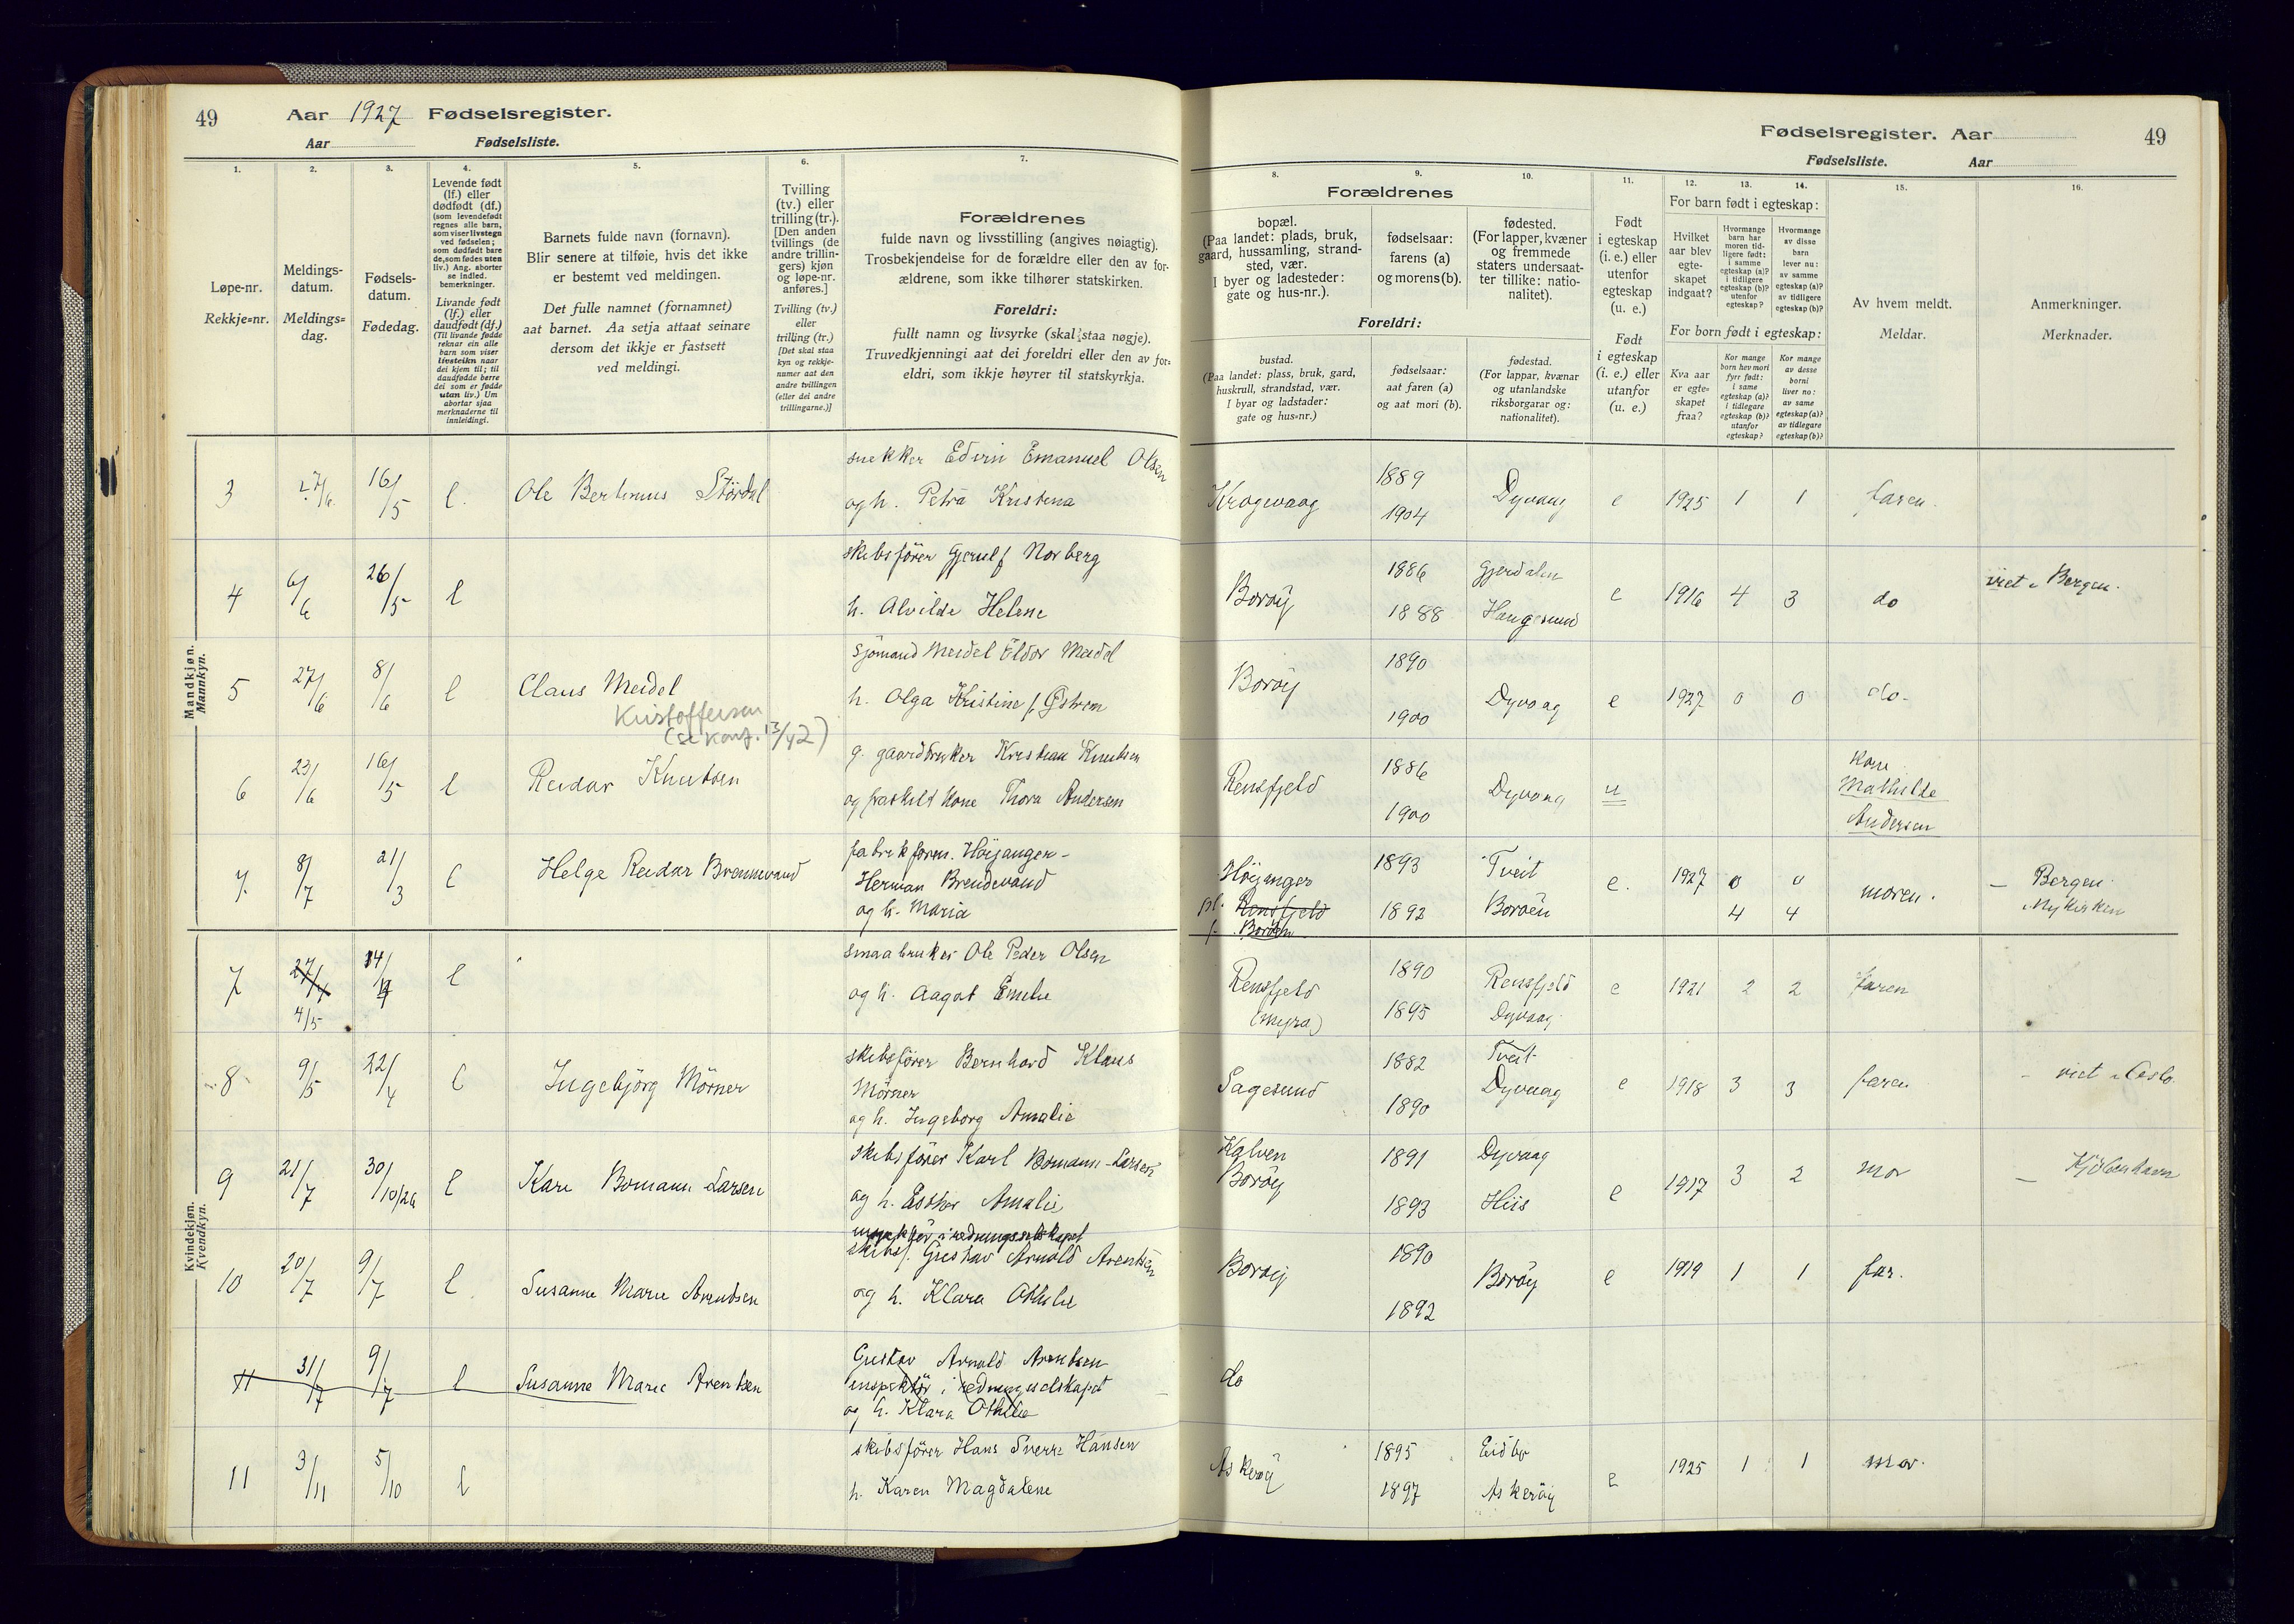 49
Aar 1927 Fødselsregister.
Aar Fødselsliste.
1.
2.
3.
4.
5.
6.
7.
Løpe-nr.
Rekkje-nr.
Meldings-
datum.
Meldings-
dag.
Fødsels-
datum.
Fødedag.
Levende født
(lf.) eller
dødfødt (df.)
(som levendefødt
regnes alle barn,
som viser livstegn
ved fødselen;
som dødfødt bare
de, som fødes uten
liv.) Ang. aborter
se indled.
bemerkninger.
Livande født
(lf.) eller
daudfødt (df.)
(Til livande fødde
reknar ein alle
barn som viser
livsteikn naar
dei kjem til; til
daudfødde berre
dei som er fødde
utan liv.) Um
abortar sjaa
merknaderne til
innleidingi.
Barnets fulde navn (fornavn).
Blir senere at tilføie, hvis det ikke
er bestemt ved meldingen.
Det fulle namnet (fornamnet)
aat barnet. Aa setja attaat seinare
dersom det ikkje er fastsett
ved meldingi.
Tvilling
(tv.) eller
trilling (tr.).
[Den anden
tvillings (de
andre trillin-
gers) kjøn
og løpe-nr.
anføres.]
Tvilling (tv.)
eller
trilling (tr.)
[Det skal staa
kyn og rekkje-
numer aat den
andre tvillingen
(eller dei andre
trillingarne.)]
Forældrenes
fulde navn og livsstilling (angives nøiagtig).
Trosbekjendelse for de forældre eller den av for-
ældrene, som ikke tilhører statskirken.
Foreldri:
fullt namn og livsyrke (skal staa nøgje).
Truvedkjenningi aat dei foreldri eller den av for-
eldri, som ikkje høyrer til statskyrkja.
Mandkjøn.
Mannkyn.
3 27/6 16/5 l. Ole Bertinius Stördal
snekker Edvin Emanuel Olsen
og h. Petra Kristena
4 6/6 26/5 l
skibsförer Gjerulf Norberg
h. Alvilde Helene
5 27/6 8/6 l Claus Meidel
Kristoffersen
(se konf. 13/42)
Sjömand Meidel Eldor Meidel
h. Olga Kristine f. Østrem
6 23/6 16/5 l Reidar Knutsen
g. gaardbruker Kristian Knutsen
og fraskilt kone Thora Andersen
7. 8/7 21/3 l Helge Reidar Brennevand
fabrikform. Höyanger -
Herman Brendevand
og h. Maria
Kvindekjøn.
Kvendkyn.
7 27/4 14/4 l
4/5
smaabruker Ole Peder Olsen
og h. Aagot Emelie
8 9/5 22/4 l Ingebjörg Mörner
skibsförer Bernhard Klaus
Mörner
og h. Ingeborg Amalie
9 21/7 30/10/26 l Kari Bomann-Larsen
skibsförer Karl Bomann-Larsen
og h. Esther Amalie
10 20/7 9/7 l. Susanne Marie Arentsen
inspektör i redningsselskapet
skibsf. Gustav Arnold Arentsen
og h. Klara Othilie
11 31/7 9/7 l Susanne Marie Arentsen
Gustav Arnold Arentsen
inspektör i redningsselskapet
og h. Klara Othilie
11 3/11 5/10 l
skibsförer Hans Sverre Hansen
h. Karen Magdalene
Fødselsregister. Aar
49
Fødselsliste. Aar
8.
9.
10.
11.
12.
13.
14.
15.
16.
Forældrenes
bopæl.
(Paa landet: plads, bruk,
gaard, hussamling, strand-
sted, vær.
I byer og ladesteder:
gate og hus-nr.).
Foreldri:
bustad.
(Paa landet: plass, bruk, gard,
huskrull, strandstad, vær.
I byar og ladstader:
gate og hus-nr.)
fødselsaar:
farens (a)
og morens (b).
fødselsaar:
aat faren (a)
og aat mori (b).
fødested.
(For lapper, kvæner
og fremmede
staters undersaat-
ter tillike: natio-
nalitet).
fødestad.
(For lappar, kvænar
og utanlandske
riksborgarar og:
nationalitet).
Født
i egteskap
(i. e.) eller
utenfor
egteskap
(u. e.)
Født
i egteskap
(i. e.) eller
utanfor
(u. e.)
For barn født i egteskap:
Hvilket
aar blev
egte-
skapet
indgaat?
Hvormange
barn har
moren tid-
ligere født:
i samme
egteskap (a)?
i tidligere
egteskap (b)?
utenfor
egteskap?
Hvormange
av disse
barn
lever nu:
av samme
egteskap (a)?
av tidligere
egteskap (b)?
For born født i egteskap:
Kva aar
er egte-
skapet
fraa?
Kor mange
born hev mori
fyrr født:
i same
egteskap (a)?
i tidlegare
egteskap (b)?
utanfor
egteskap?
Kor mange
av desse
borni
liver no:
av same
egteskap (a)?
av tidlegare
egteskap (b)?
Av hvem meldt.
Meldar.
Anmerkninger.
Merknader.
Krogevaag 1889 1904 Dyvaag e 1925 1 1 faren.
Boröy 1886 Gjerdalen
1888 Haugesund e 1916 4 3 do viet i Bergen.
Boröy 1890 1900 Dyvaag e 1927 0 0 do-
Rensfjeld 1886 1900 Dyvaag u
Kone
Mathilde
Andersen
Höyanger 1893 Tveit e. 1927 0 0 moren. - Bergen.
Rensfjeld 1892 Boröen 4 4 Nykirken
Boröen
Rensfjeld 1890 Rensfjeld e 1921 2 2 faren
(Myra) 1895 Dyvaag
Sagesund 1882 Tveit
1890 Dyvaag e 1918 3 3 faren - viet i Oslo.
Kalven 1891 Dyvaag
Boröy 1893 Hiis e 1917 3 2 mor - Kjöbenhavn
Boröy 1890 1892 Boröy e 1919 1 1 far.
do
Askeröy 1895 Eidbo
1897 Askeröy e 1925 1 1 mor.